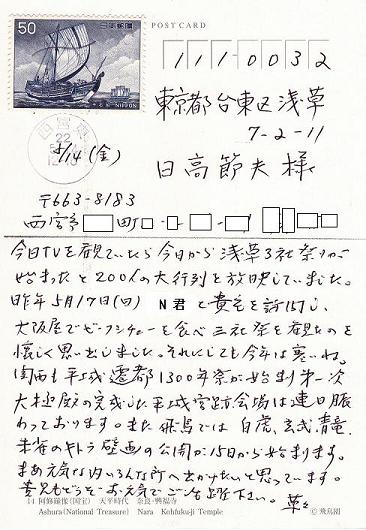 50
日本郵便
NIPPON
POST CARD
111-0032
東京都台東区浅草
7-2-11
日高節夫様
西宮東
22
5/14(金)
〒663-8183
西宮市 町 - -
今日TVを観ていたら今日から浅草三社祭りが
始まったと200人の大行列を放映していました。
昨年5月17日(日) N君 と貴宅を訪問し、
大阪屋でビーフシチューを食べ三社祭を観たのを
懐しく思い出しました。それにしても今年は寒いね。
関西も平城遷都1300年祭が始まり第一次
大極殿の完成した平城宮跡会場は連日賑
わっております。また飛鳥では白虎、玄武、青竜、
朱雀のキトラ壁画の公開が15日から始まります。
まあ元気な内いろんな所へ出かけたいと思っています。
貴兄もどうぞお元気でご活躍下さい。 草々
14 阿修羅像(国宝) 天平時代 奈良・興福寺
Ashura(National Treasure) Nara Kohfukuji Temple
© 飛鳥園